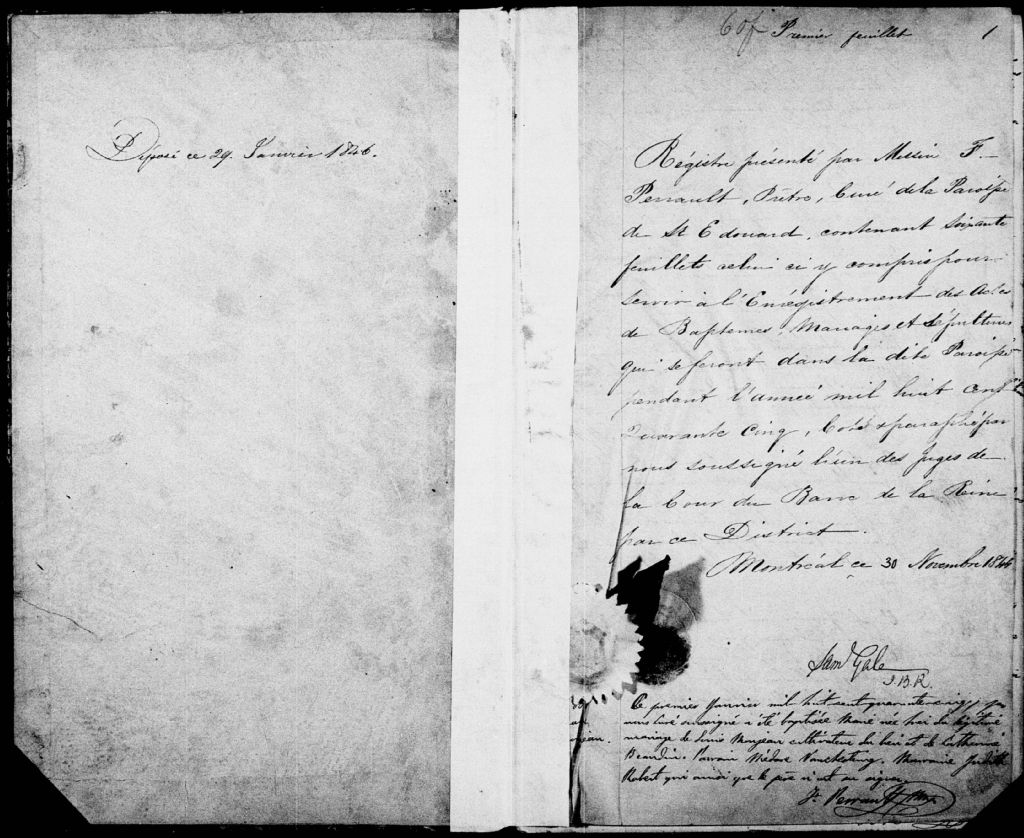 Déposé ce 29. Janvier 1846.
60 f Premier feuillet 1
Régistre présenté par Messire F.
Perrault, Prêtre, Curé de la Paroisse
de St Edouard, contenant soixante
feuillets celui ci y compris pour
servir à l'Enrégistrement des Actes
de Baptemes, Mariages et Sépultures
qui se feront dans la dite Paroisse
pendant l'année mil huit cent
Quarante Cinq, Coté & paraphé par
nous soussigné l'un des Juges de
la Cour du Banc de la Reine
par ce District.
Montréal ce 30 Novembre 1844
Saml Gale
J.B.R.
Ce premier Janvier mil huit cent quarante cinq, par
nous Curé soussigné a été baptisée Marie née hier du légitime
mariage de Louis cultivateur du lieu et de Catherine
Beaudin. Parrain Médard Marraine Judith
Robert qui ainsi que le père n'ont su signer
F. Perrault Ptre